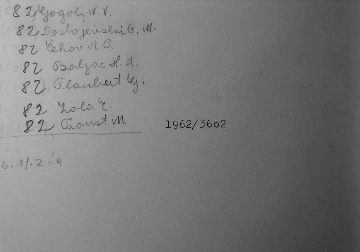 82 Gogolj N. V.
82 Dostojevski F. M.
82 Čehov A. P.
82 Balzac H. d.
82 Flaubert G.
82 Zola E.
82 Proust M 1962/3602